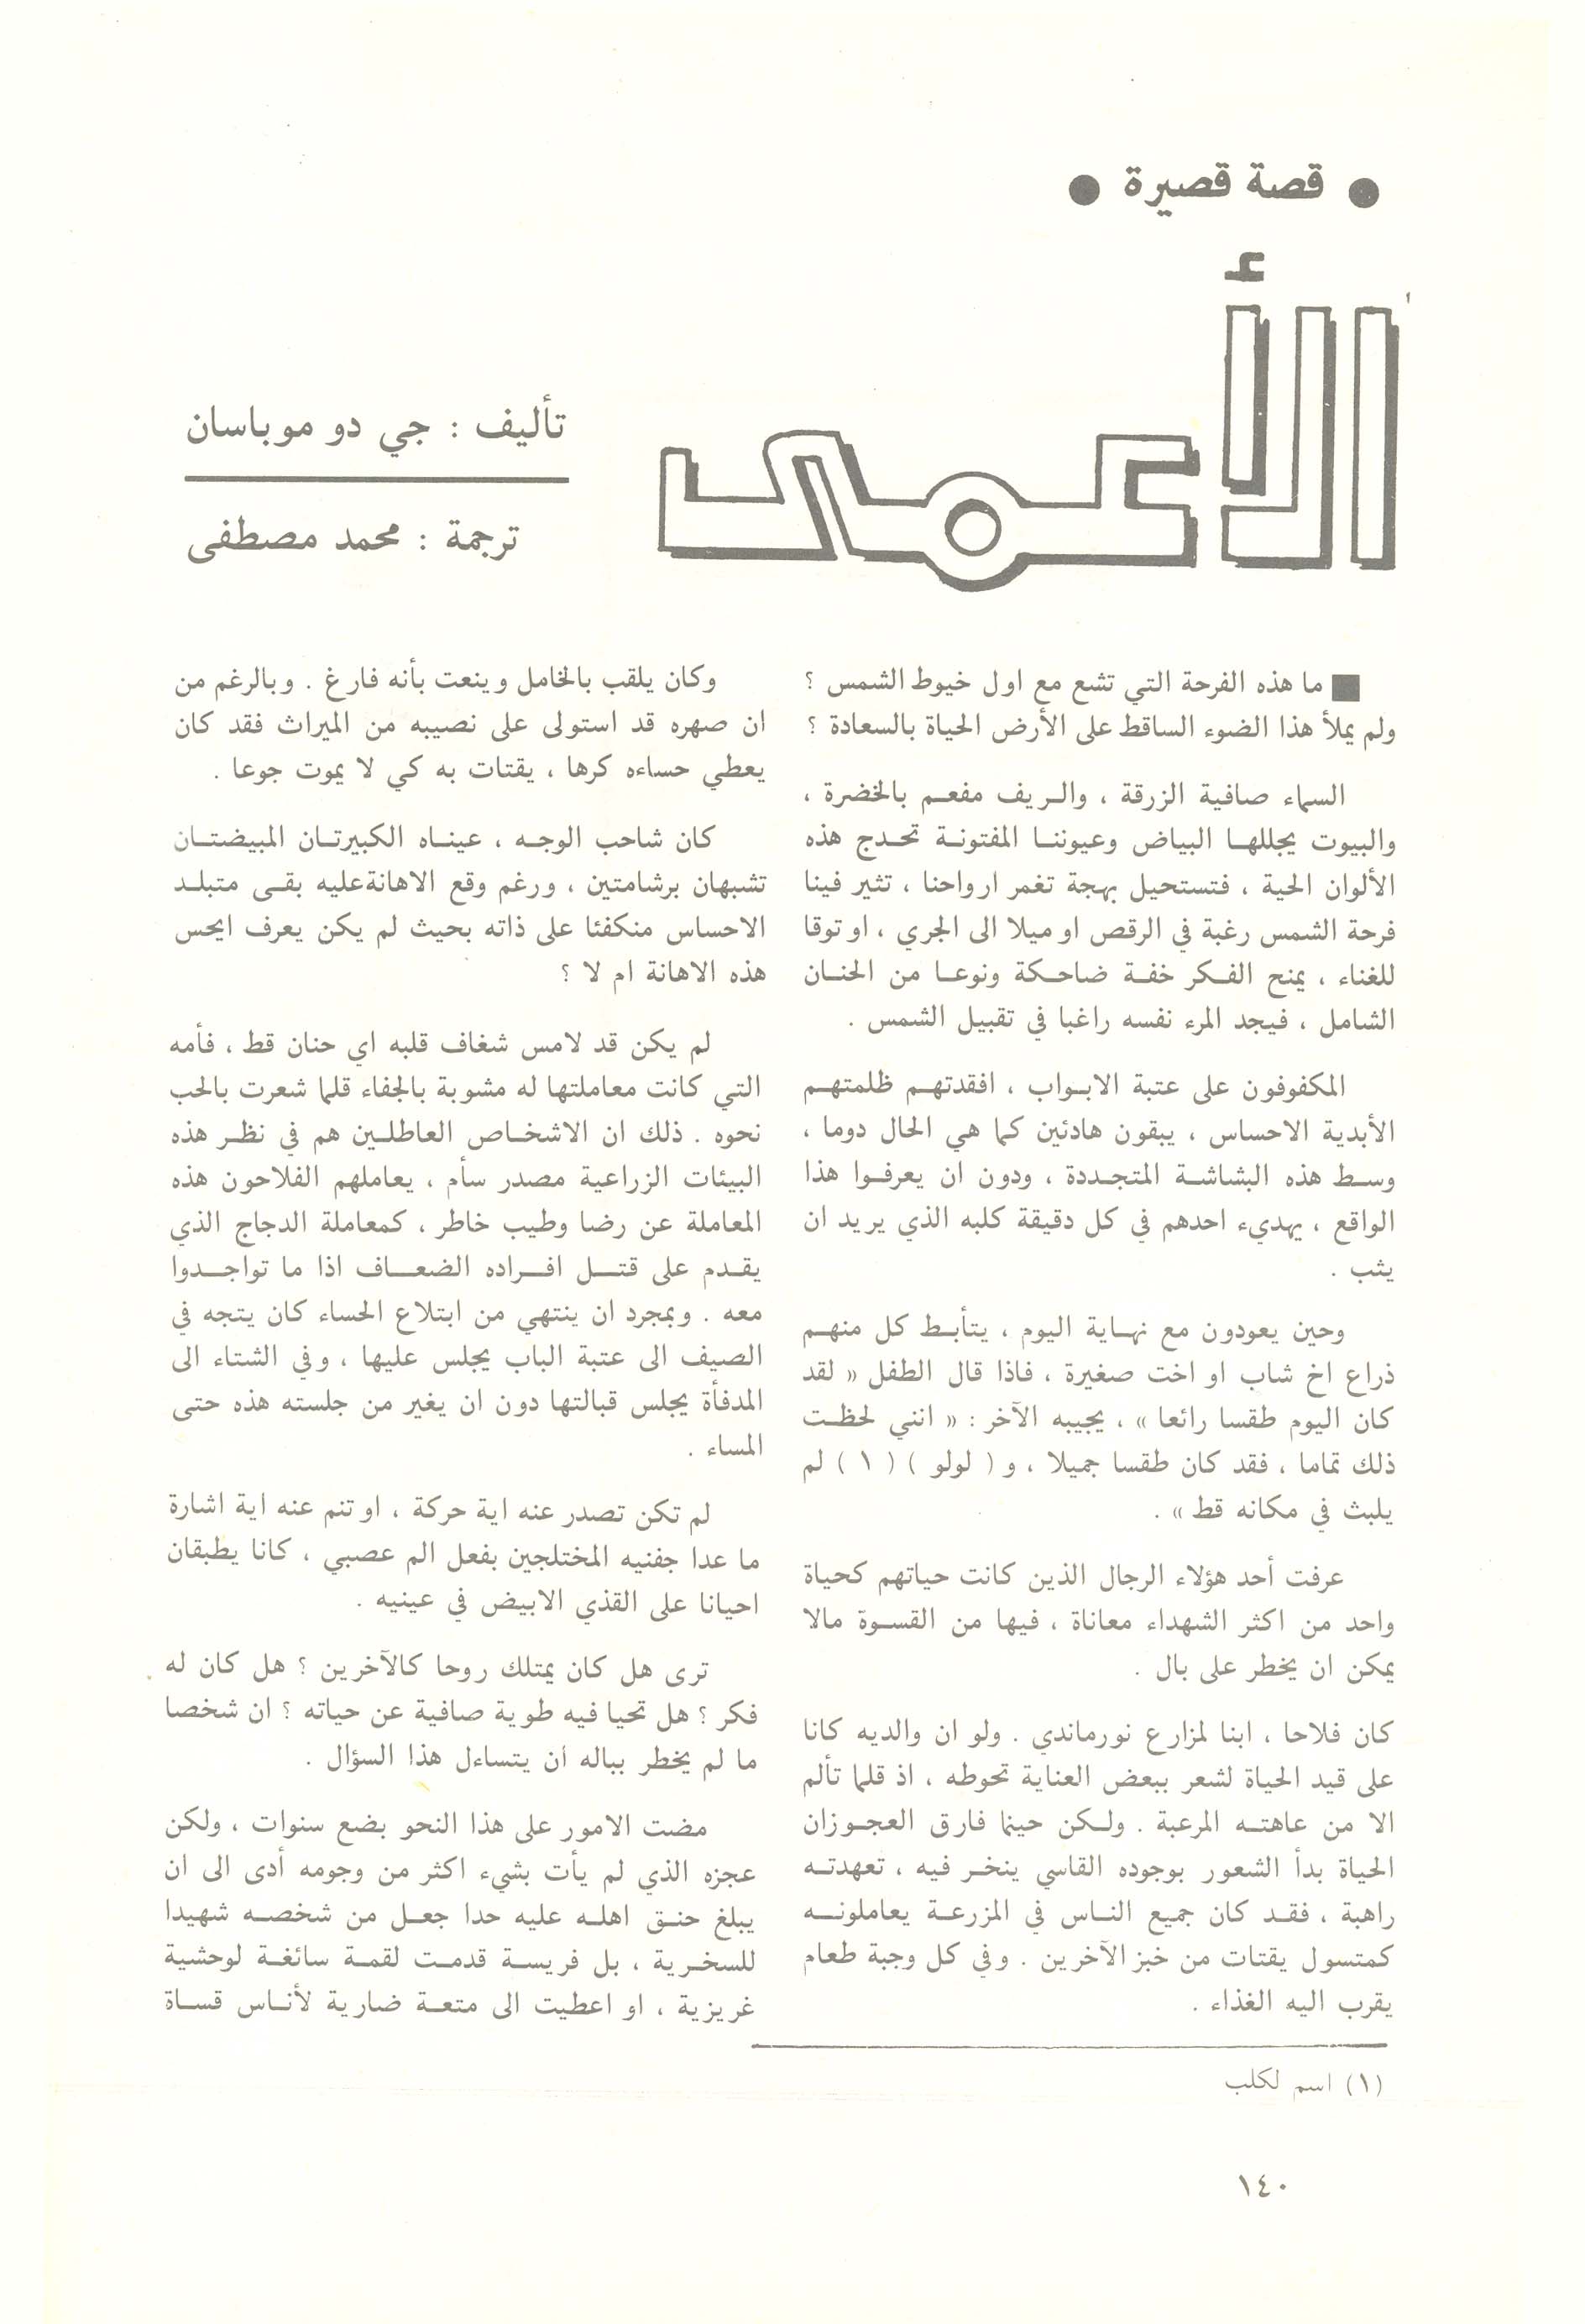 ● قصة قصيرة ●
الأعمى
تأليف : جي دو موباسان
ترجمة : محمد مصطفى
■ ما هذه الفرحة التي تشع مع اول خيوط الشمس ؟
ولم يملأ هذا الضوء الساقط على الأرض الحياة بالسعادة ؟
السماء صافية الزرقة ، والريف مفعم بالخضرة ،
والبيوت يجللها البياض وعيوننا المفتونة تحدج هذه
الألوان الحية ، فتستحيل بهجة تغمر ارواحنا ، تثير فينا
فرحة الشمس رغبة في الرقص او ميلا الى الجري ، او توقا
للغناء ، يمنح الفكر خفة ضاحكة ونوعا من الحنان
الشامل ، فيجد المرء نفسه راغبا في تقبيل الشمس .
المكفوفون على عتبة الابواب ، افقدتهم ظلمتهم
الأبدية الاحساس ، يبقون هادئين كما هي الحال دوما ،
وسط هذه البشاشة المتجددة ، ودون ان يعرفوا هذا
الواقع ، يهديء احدهم في كل دقيقة كلبه الذي يريد ان
يثب .
وحين يعودون مع نهاية اليوم ، يتأبط كل منهم
ذراع اخ شاب او اخت صغيرة ، فاذا قال الطفل « لقد
كان اليوم طقسا رائعا » ، يجيبه الآخر : « انني لحظت
ذلك تماما ، فقد كان طقسا جميلا ، و ( لولو ) ( ١ ) لم
يلبث في مكانه قط » .
عرفت أحد هؤلاء الرجال الذين كانت حياتهم كحياة
واحد من اكثر الشهداء معاناة ، فيها من القسوة مالا
يمكن ان يخطر على بال .
كان فلاحا ، ابنا لمزارع نورماندي . ولو ان والديه كانا
على قيد الحياة لشعر ببعض العناية تحوطه ، اذ قلما تألم
الا من عاهته المرعبة . ولكن حينما فارق العجوزان
الحياة بدأ الشعور بوجوده القاسي ينخر فيه ، تعهدته
راهبة ، فقد كان جميع الناس في المزرعة يعاملونه
كمتسول يقتات من خبز الآخرين . وفي كل وجبة طعام
يقرب اليه الغذاء .
وكان يلقب بالخامل وينعت بأنه فارغ . وبالرغم من
ان صهره قد استولى على نصيبه من الميراث فقد كان
يعطي حساءه كرها ، يقتات به كي لا يموت جوعا .
كان شاحب الوجه ، عيناه الكبيرتان المبيضتان
تشبهان برشامتين ، ورغم وقع الاهانة عليه بقى متبلد
الاحساس منكفئا على ذاته بحيث لم يكن يعرف ايحس
هذه الاهانة ام لا ؟
لم يكن قد لامس شغاف قلبه اي حنان قط ، فأمه
التي كانت معاملتها له مشوبة بالجفاء قلما شعرت بالحب
نحوه . ذلك ان الاشخاص العاطلين هم في نظر هذه
البيئات الزراعية مصدر سأم ، يعاملهم الفلاحون هذه
المعاملة عن رضا وطيب خاطر ، كمعاملة الدجاج الذي
يقدم على قتل افراده الضعاف اذا ما تواجدوا
معه . وبمجرد ان ينتهي من ابتلاع الحساء كان يتجه في
الصيف الى عتبة الباب يجلس عليها ، وفي الشتاء الى
المدفأة يجلس قبالتها دون ان يغير من جلسته هذه حتى
المساء .
لم تكن تصدر عنه اية حركة ، او تنم عنه اية اشارة
ما عدا جفنيه المختلجين بفعل الم عصبي ، كانا يطبقان
احيانا على القذي الابيض في عينيه .
ترى هل كان يمتلك روحا كالآخرين ؟ هل كان له
فكر ؟ هل تحيا فيه طوية صافية عن حياته ؟ ان شخصا
ما لم يخطر بباله أن يتساءل هذا السؤال .
مضت الامور على هذا النحو بضع سنوات ، ولكن
عجزه الذي لم يأت بشيء اكثر من وجومه أدى الى ان
يبلغ حنق اهله عليه حدا جعل من شخصه شهيدا
للسخرية ، بل فريسة قدمت لقمة سائغة لوحشية
غريزية ، او اعطيت الى متعة ضارية لأناس قساة
(١) اسم لكلب
١٤٠